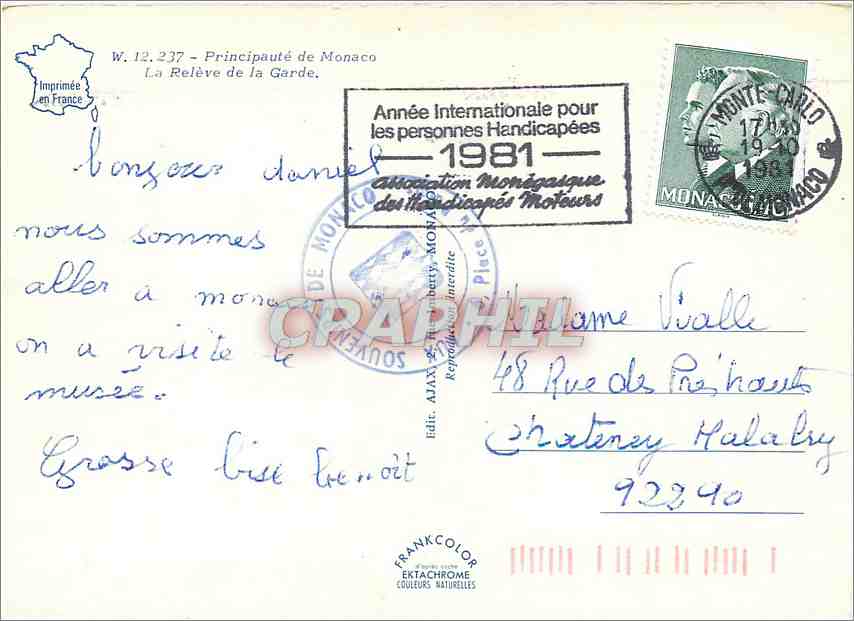 W. 12.237 - Principauté de Monaco
La Relève de la Garde.
Imprimée
en France
Année Internationale pour
les personnes Handicapées
1981
association Monégasque
des Handicapés Moteurs
MONTE-CARLO
19-10
MONACO
MONACO
bonjour daniel
nous sommes
aller a monaco
on a visité le
musée.
Grosse bise Benoît
SOUVENIR DE MONACO
Place
Edit. AJAX, 2, Rue Imberty, MONACO
Reproduction interdite
CRAPHIL
Madame Vialle
48 Rue des Prés hauts
Chatenay Malabry
92290
FRANKCOLOR
d'après cliché
EKTACHROME
COULEURS NATURELLES